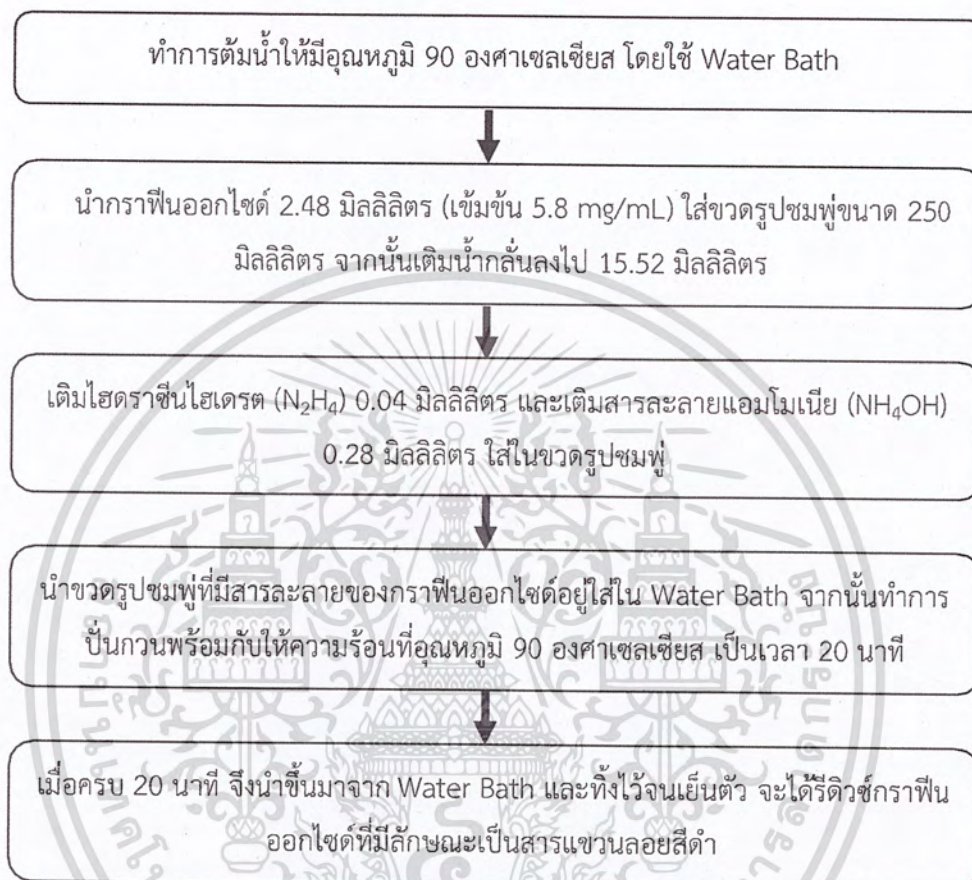 ทำการต้มน้ำให้มีอุณหภูมิ 90 องศาเซลเซียส โดยใช้ Water Bath
นำกราฟีนออกไซด์ 2.48 มิลลิลิตร (เข้มข้น 5.8 mg/mL) ใส่ขวดรูปชมพู่ขนาด 250
มิลลิลิตร จากนั้นเติมน้ำกลั่นลงไป 15.52 มิลลิลิตร
เติมไฮดราซีนไฮเดรต (N₂H₄) 0.04 มิลลิลิตร และเติมสารละลายแอมโมเนีย (NH₄OH)
0.28 มิลลิลิตร ใส่ในขวดรูปชมพู่
นำขวดรูปชมพู่ที่มีสารละลายของกราฟีนออกไซด์อยู่ใส่ใน Water Bath จากนั้นทำการ
ปั่นกวนพร้อมกับให้ความร้อนที่อุณหภูมิ 90 องศาเซลเซียส เป็นเวลา 20 นาที
เมื่อครบ 20 นาที จึงนำขึ้นมาจาก Water Bath และทิ้งไว้จนเย็นตัว จะได้รีดิวซ์กราฟีน
ออกไซด์ที่มีลักษณะเป็นสารแขวนลอยสีดำ